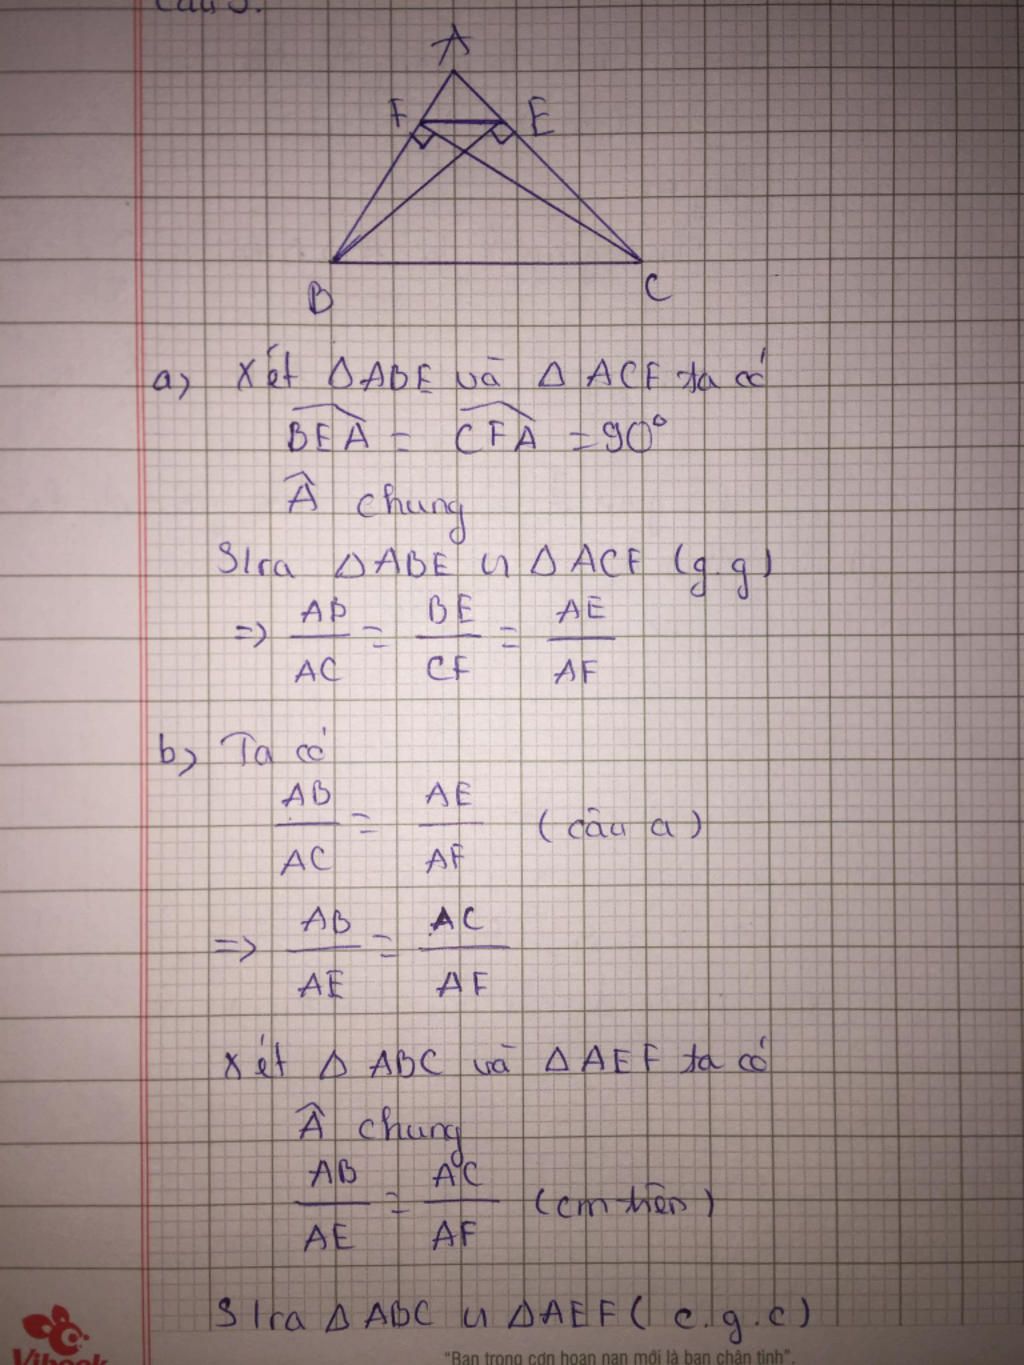 Câu 3.
A
F E
B C
a, Xét ΔABE và ΔACF ta có
BEA = CFA = 90°
Â chung
Slra ΔABE ᔕ ΔACF (g.g)
=> AB/AC = BE/CF = AE/AF
b, Ta có
AB/AC = AE/AF (câu a)
=> AB/AE = AC/AF
Xét ΔABC và ΔAEF ta có
Â chung
AB/AE = AC/AF (cm trên)
Slra ΔABC ᔕ ΔAEF (c.g.c)
Vibook
"Bạn trong cơn hoạn nạn mới là bạn chân tình".